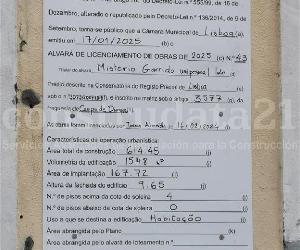 do Decreto-Lei n.º 555/99, de 16 de
Dezembro, alterado e republicado pelo Decreto-Lei n.º 136/2014, de 9 de
Setembro, torna-se público que a Câmara Municipal de Lisboa (a)
emitiu em 17/01/2025 (b) o
ALVARÁ DE LICENCIAMENTO DE OBRAS DE 2025 (c) N.º 43
Titular do alvará Misterio Garrido unipessoal Lda
Prédio descrito na Conservatória do Registo Predial de Lisboa
sob o n.º e inscrito na matriz sob o artigo 3577
freguesia de Campo de
As obras foram licenciadas por em 16/02/2024
Características da operação urbanística:
Área total de construção 614.45
Volumetria da edificação 1548 m³
Área de implantação 167.72
Altura da fachada do edifício 9.65
N.º de pisos acima da cota de soleira 4
N.º de pisos abaixo da cota de soleira 0
Uso a que se destina a edificação Habitação
Área abrangida pelo Plano
Área abrangida pelo alvará de loteamento n.º